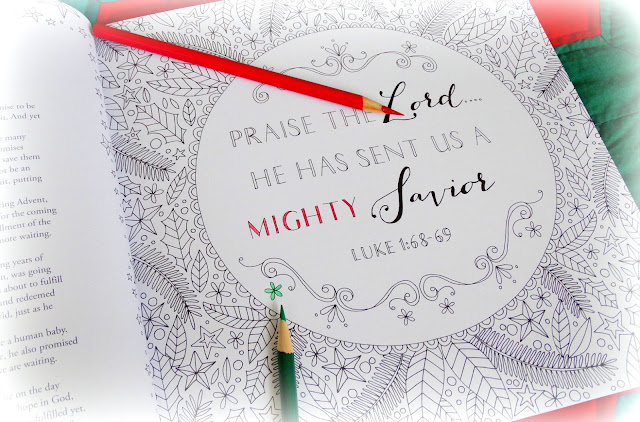 mise to be
it. And yet
many
omises
save them
or be an
it, putting
ing Advent,
for the coming
illment of the
mote waiting.
ng years of
, was going
about to fulfill
and redeemed
rld, just as he
e a human baby.
e, he also promised
e are waiting.
er on the day
hope in God,
fulfilled yet.
PRAISE THE Lord....
HE HAS SENT US A
MIGHTY Savior
LUKE 1:68-69